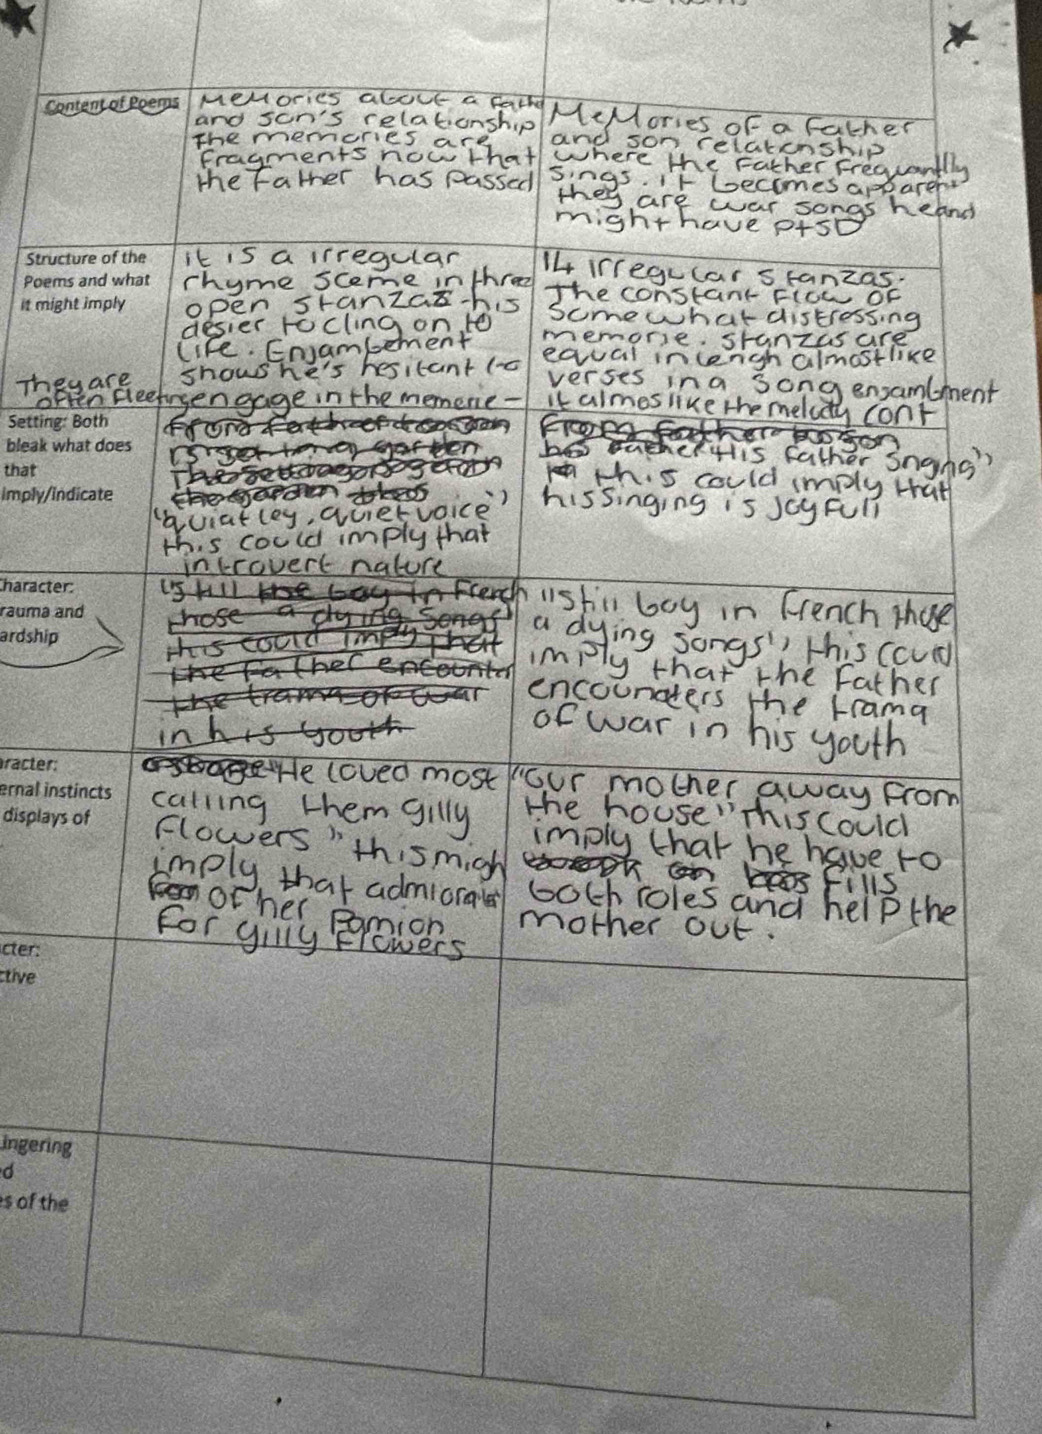 Content of Poems
Memories about a Fathe
and son's relationship
The memories are
fragments now that
the Father has passed
MeMories of a Father
and son relationship
where the Father Frequantlly
sings. it becomes apparent
they are war songs he and
might have PtSD
Structure of the
Poems and what
it might imply
They are
often Fleeting
it is a irregular
rhyme sceme in three
open stanzas - his
desier to cling on to
life. Enjambement
shows he's hesitant to
engage in the memerie -
14 irregular stanzas.
The constant Flow of
somewhat distressing
memorie. stanzas are
equal in lengh almost like
verses in a song enjambment
it almos like the melody cont
Setting: Both
bleak what does
that
imply/indicate
"quiatley, quiet voice"
this could imply that
introvert nature
His father singing"
this could imply that
his singing is joyfull
Character:
rauma and
ardship
"still the boy in French
those a dying songs"
this could imply that
the father encounter
the trama of war
in his youth
"still boy in french those
a dying songs", this could
imply that the father
encounters the trama
of war in his youth
aracter:
ernal instincts
displays of
"He loved most
calling them gilly
Flowers" this migh
imply that
of her
For gilly Flowers
"our mother away from
the house" this could
imply that he have to
fills
both roles and help the
mother out.
cter:
ctive
ingering
d
s of the